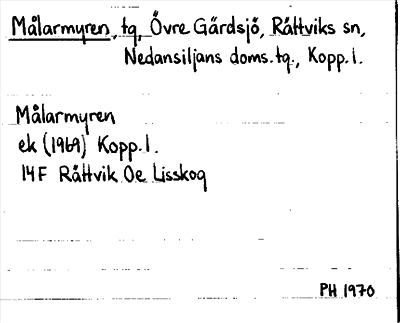 Målarmyren, tg, Övre Gärdsjö, Rättviks sn,
Nedansiljans doms.tg., Kopp.l.
Målarmyren
ek (1969) Kopp.l.
14F Rättvik 0e Lisskog
PH 1970